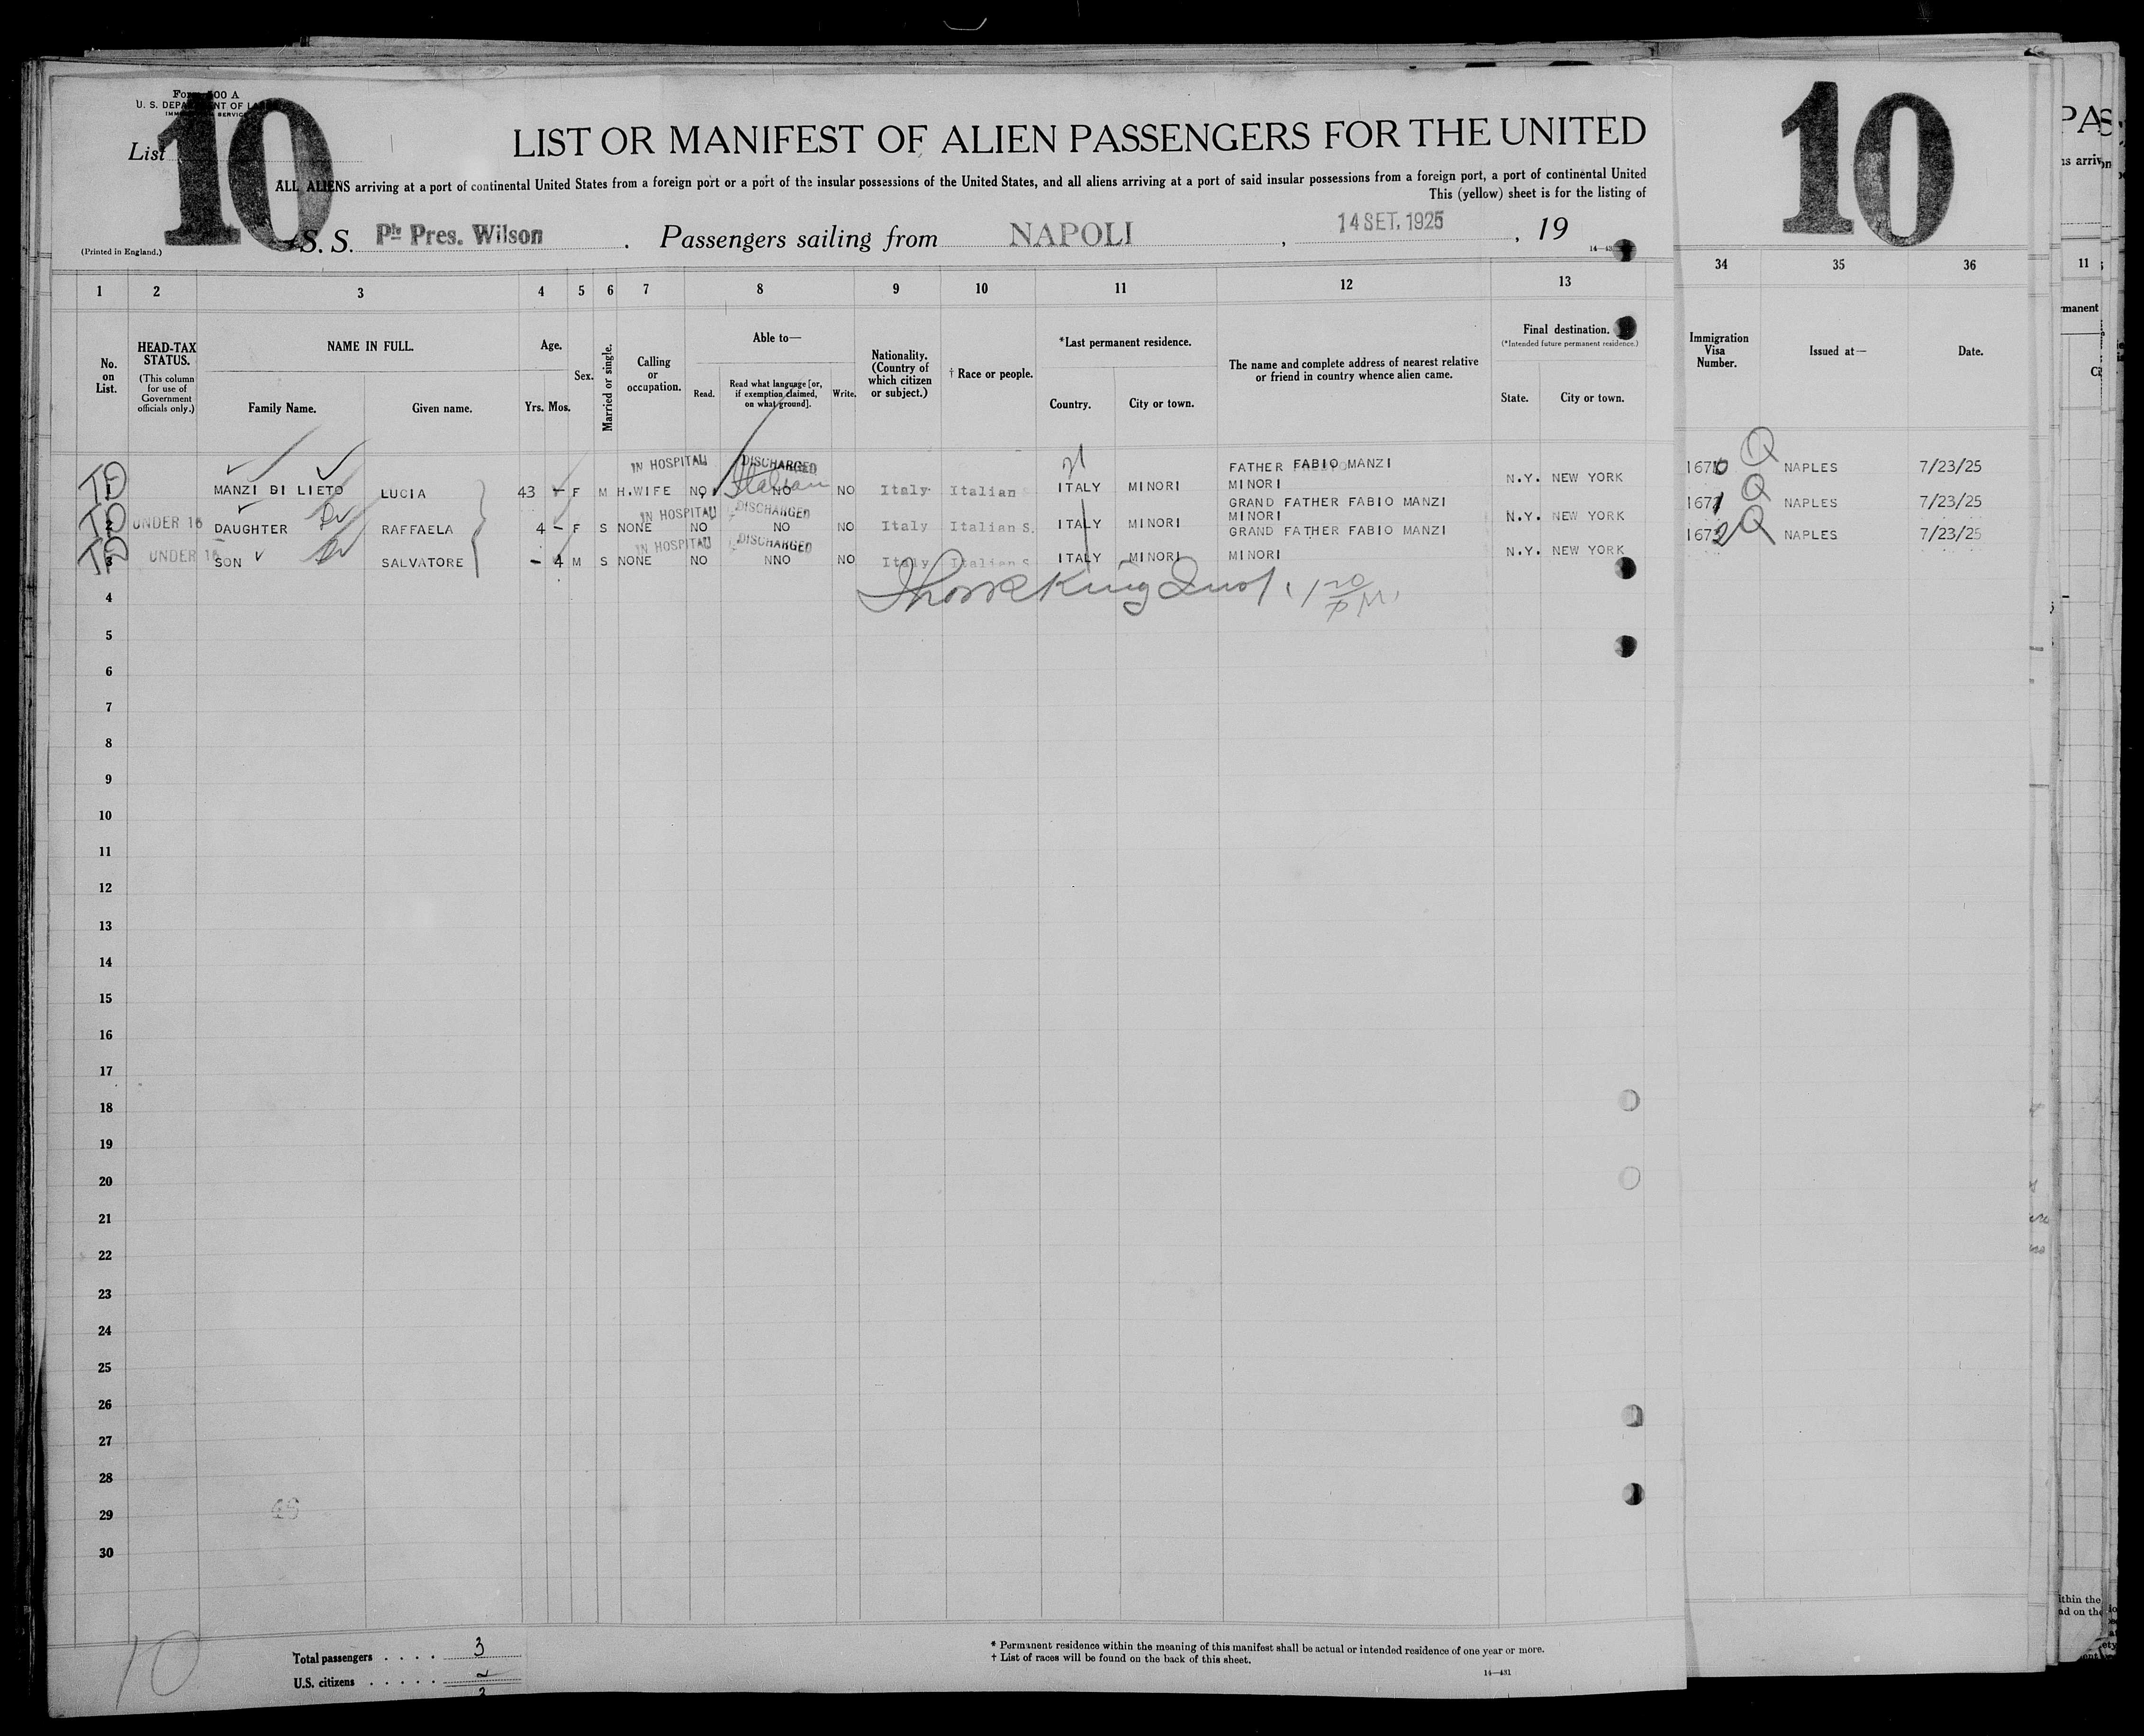 Form 500 A
U. S. DEPARTMENT OF LABOR
IMMIGRATION SERVICE
List 10
10
LIST OR MANIFEST OF ALIEN PASSENGERS FOR THE UNITED
ALL ALIENS arriving at a port of continental United States from a foreign port or a port of the insular possessions of the United States, and all aliens arriving at a port of said insular possessions from a foreign port, a port of continental United
This (yellow) sheet is for the listing of
(Printed in England.)
S. S. Pte Pres. Wilson . Passengers sailing from NAPOLI , 14 SET. 1925 , 19
1 2 3 4 5 6 7 8 9 10 11 12 13 34 35 36
No. on List.
HEAD-TAX STATUS.
(This column for use of Government officials only.)
NAME IN FULL.
Family Name. Given name.
Age.
Yrs. Mos.
Sex.
Married or single.
Calling or occupation.
Able to—
Read. Read what language [or, if exemption claimed, on what ground]. Write.
Nationality. (Country of which citizen or subject.)
† Race or people.
*Last permanent residence.
Country. City or town.
The name and complete address of nearest relative or friend in country whence alien came.
Final destination.
(*Intended future permanent residence.)
State. City or town.
Immigration Visa Number.
Issued at—
Date.
IN HOSPITAL DISCHARGED
1 MANZI DI LIETO LUCIA 43 - F M H.WIFE NO Italian NO NO Italy Italian ITALY MINORI FATHER FABIO MANZI MINORI N.Y. NEW YORK 1670 Q NAPLES 7/23/25
IN HOSPITAL DISCHARGED
2 UNDER 16 DAUGHTER RAFFAELA 4 - F S NONE NO NO NO Italy Italian S. ITALY MINORI GRAND FATHER FABIO MANZI MINORI N.Y. NEW YORK 1671 Q NAPLES 7/23/25
IN HOSPITAL DISCHARGED
3 UNDER 16 SON SALVATORE - 4 M S NONE NO NNO NO Italy Italian S ITALY MINORI GRAND FATHER FABIO MANZI MINORI N.Y. NEW YORK 1672 Q NAPLES 7/23/25
4
5
6
7
8
9
10
11
12
13
14
15
16
17
18
19
20
21
22
23
24
25
26
27
28
29
30
10
Total passengers . . . . 3
U.S. citizens . . . . .
* Permanent residence within the meaning of this manifest shall be actual or intended residence of one year or more.
† List of races will be found on the back of this sheet.
14—431